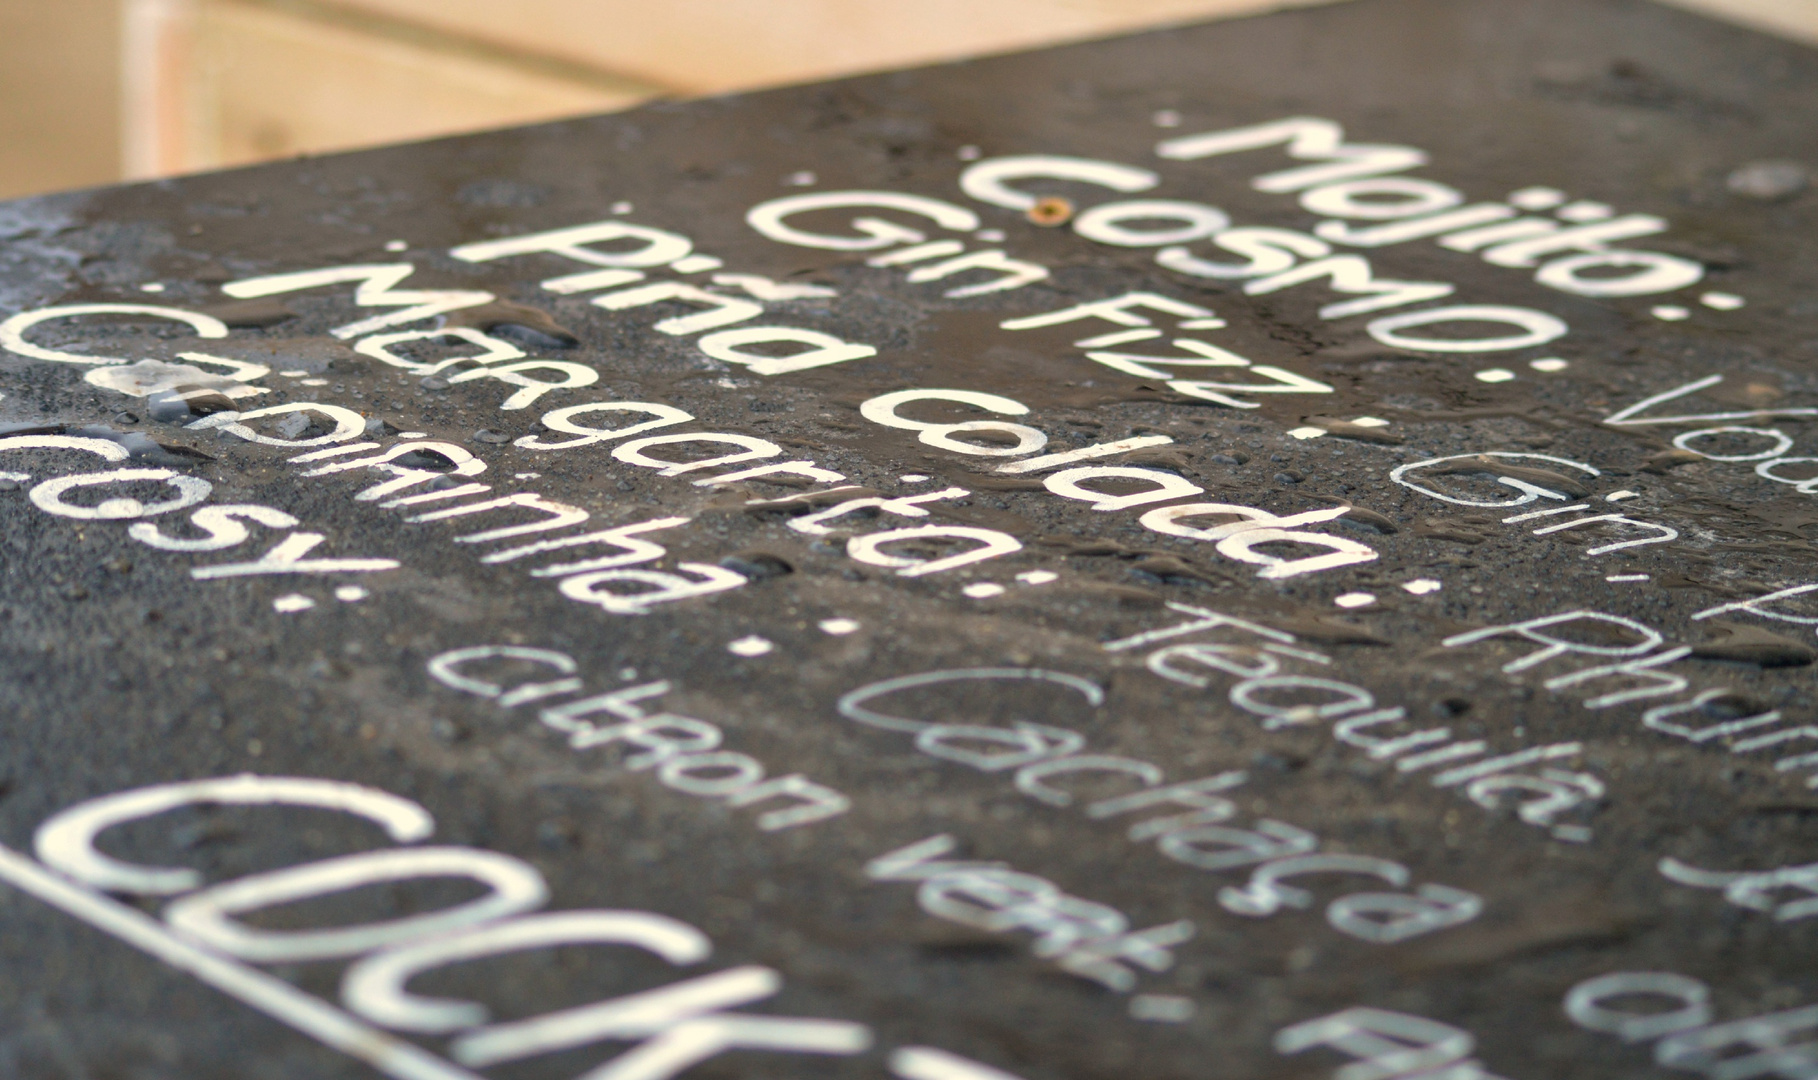 Mojito:
Cosmo: Vod
Gin Fizz: Gin,
Piña Colada: Rhum
Margarita: Tequila,
Caipirinha: Cachaça
Cosy: Citron vert.
COCK